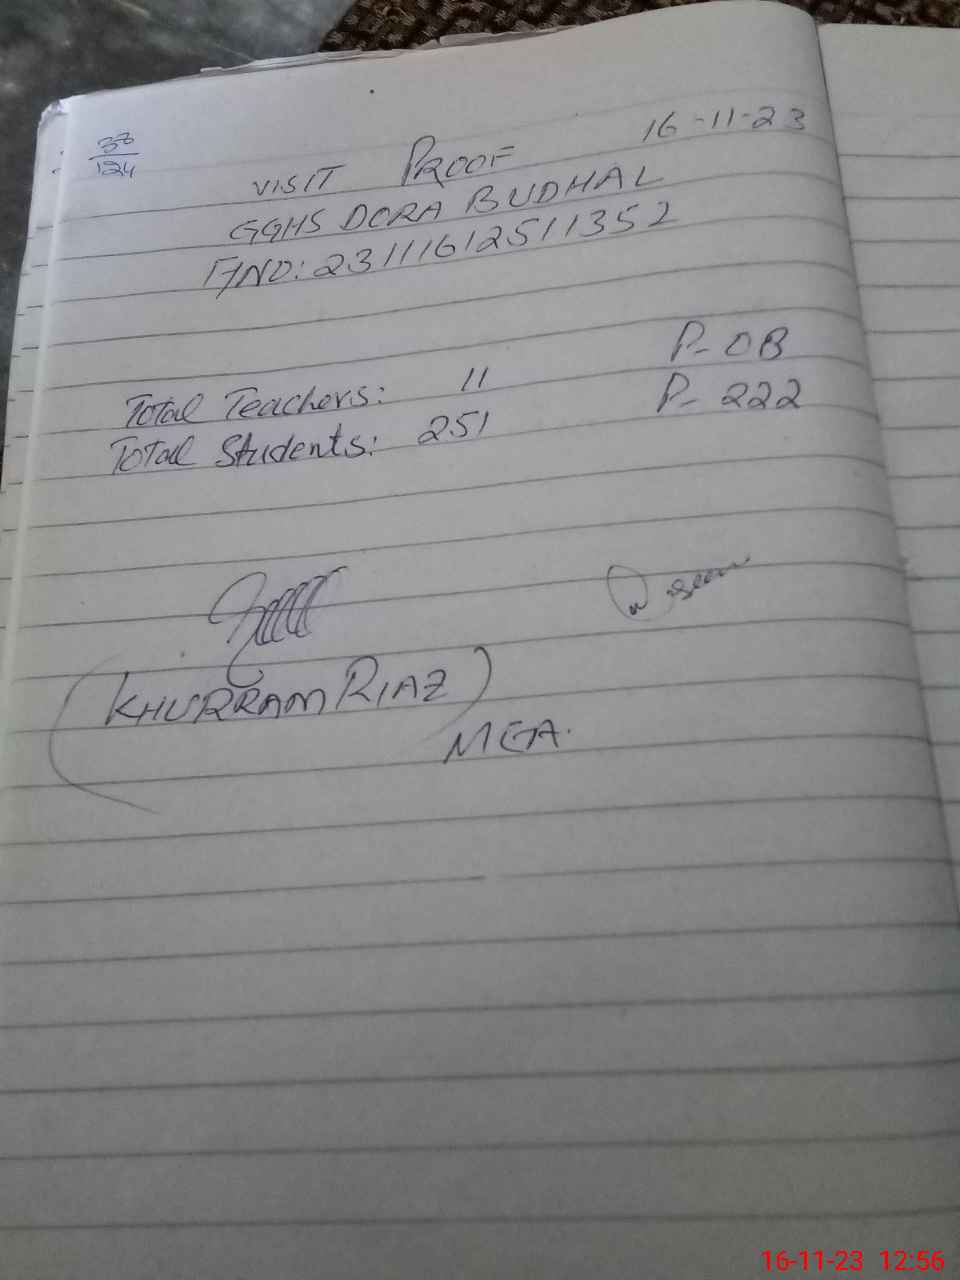 38
124
16-11-23
VISIT PROOF
GGHS DORA BUDHAL
F/NO: 23111612511352
Total Teachers: 11 P- 08
Total Students: 251 P- 222
Waseem
(KHURRAM RIAZ)
MEA.
16-11-23 12:56